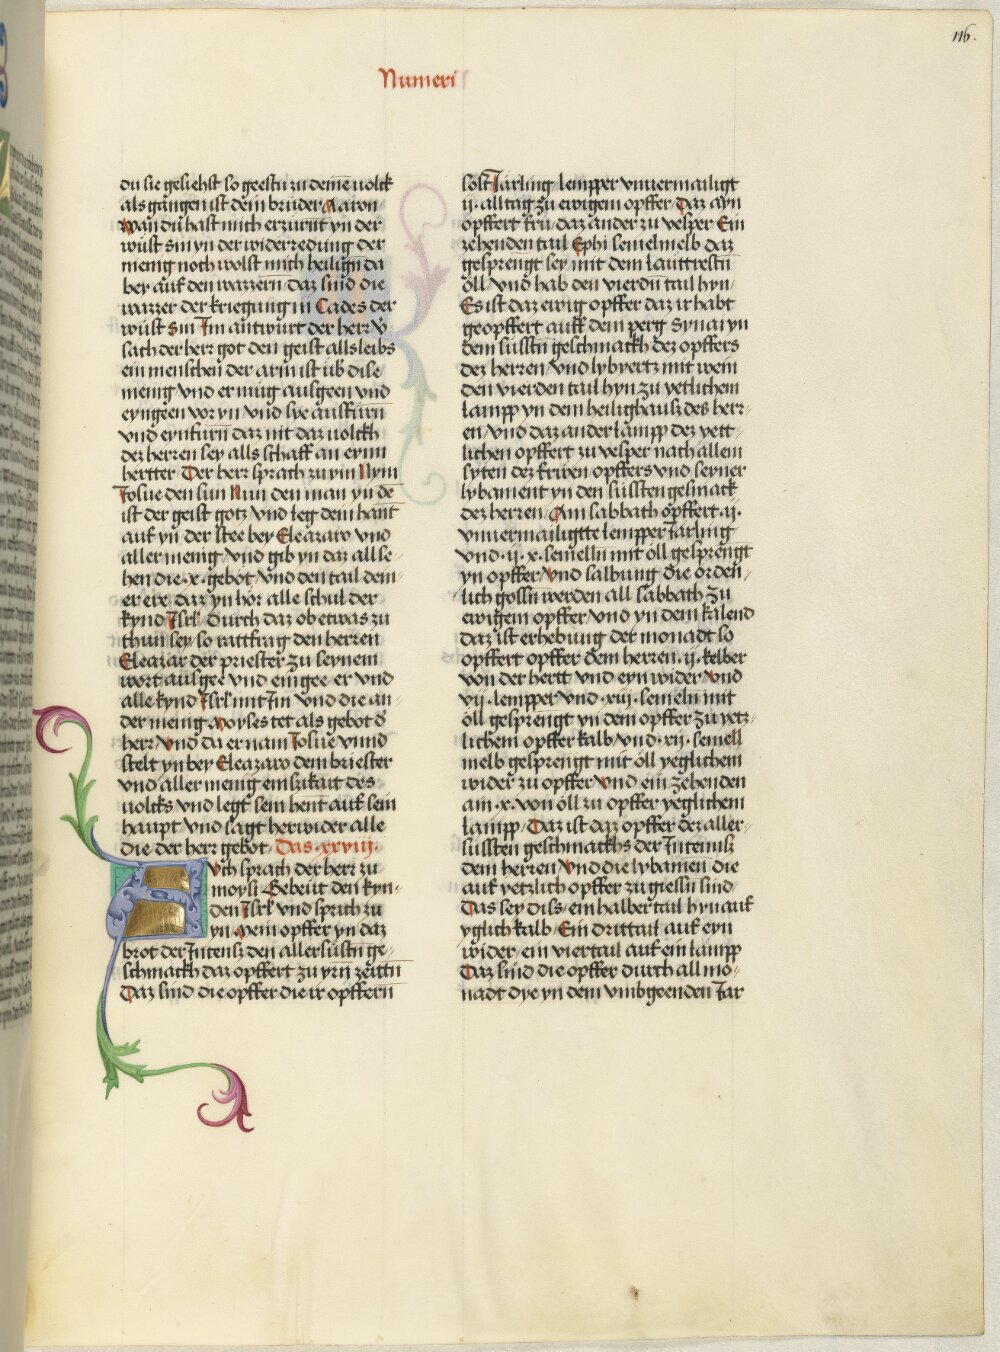 116.
Numeri
du sie gesiehst so geestu zu deinē volck
als gangen ist dein bruder Aaron
wan du hast mich erzurnt yn der
wüst sin yn der widerredung der
menig noch wolst mich heilign da
bey auf den wazzern daz sind die
wazzer der kriegung in Cades der
wüst sin Im antwurt der herr v̈
sach der herr got den geist alls leibs
ein menschen der arm ist üb dise
menig vnd er müg ausgeen vnd
eyngeen vor yn vnd sye ausfürn
vnd eynfürn daz nit daz volckh
dez herren sey alls schaff an eynn
hertter Der herr sprach zu ym Nym
Josue den sun Nun den man yn dē
ist der geist gotz vnd leg dein hant
auf yn der stee bey Eleazaro vnd
aller menig vnd gib yn daz all se-
hen die .x. gebot vnd den tail dein-
er ere daz yn hör alle schul der
kynd Jsrl durch daz ob etwas zu
thun sey so rattfrag den herren
Eleazar der priester zu seynem
wort ausgee vnd eingee er vnd
alle kynd Jsrl mit Im vnd die an-
der menig Moyses tet als gebot d̄
herr vnd da er nam Josue vnnd
stelt yn bey Eleazaro dem briester
vnd aller menig einsikait des
volcks vnd legt sein hent auf sein
haupt vnd sagt herwider alle
die der herr gebot Das .xxviij.
Auch sprach der herr zu
moysi Gebeut den kyn-
den Jsrl vnd sprich zu
yn Mein opffer yn daz
brot der Intensz den allersüstn ge-
schmackh daz opffert zu yrn zeittn
Daz sind die opffer die ir opffern
solt Järling lempper vnuermailigt
ij. alltag zu ewigem opffer Daz ayn
opffert frü daz ander zu vesper Ein
zehenden tail Ephi semelmelb daz
gesprengt sey mit dem lauttrestn
öll vnd hab den vierdn tail hyn
Es ist daz ewig opffer daz ir habt
geopffert auff dem perg Synai yn
dem süsstn geschmackh dez opffers
dez herren vnd lybvertz mit wein
den vierden tail hyn zu yetlichem
lampp yn dem heilighausz des herr-
en vnd daz ander lampp dez yett-
lichen opffert zu vesper nach allem
syten dez früen opffers vnd seyner
lybament yn den süssten gesmack
dez herren Am sabbath opffert .ij.
vnuermailigtte lempper Järling
vnd .ij. x. semelln mit öll gesprengt
yn opffer vnd salbung die orden-
lich gossn werden all sabbath zu
ewigem opffer vnd yn dem kalend
daz ist erhebung der monadt so
opffert opffer dem herren .ij. kelber
von der hertt vnd eyn wider vnd
vij. lempper vnd .xiij. semeln mit
öll gesprengt yn dem opffer zu yetz-
lichem opffer kalb vnd .xij. semell
melb gesprengt mit öll yeglichem
wider zu opffer vnd ein zehenden
am .x. von öll zu opffer yeglichem
lampp Daz ist daz opffer dez aller-
süssten geschmackhs der Intennsz
dem herren vnd die lybamen die
auf yetzlich opffer zu giessn sind
Das sey diss ein halber tail hyn auf
yglich kalb Ein drittail auf eyn
wider ein viertail auf ein lampp
Daz sind die opffer durch all mo-
nadt dye yn dem vmbgeenden Jar